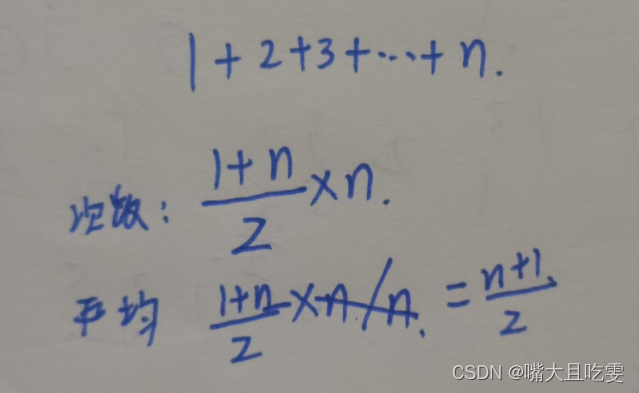 1+2+3+…+n.
次数: (1+n)/2 ×n.
平均 (1+n)/2 ×n/n. = (n+1)/2
CSDN @嘴大且吃雯